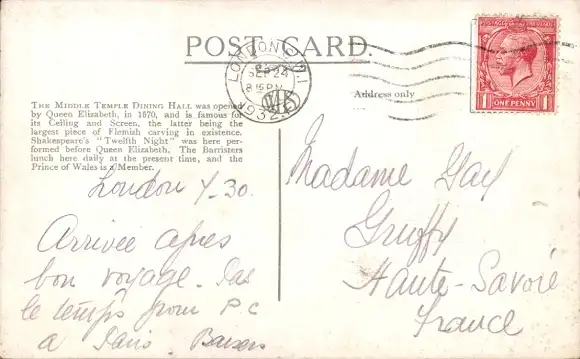 POST CARD.
LONDON W.1
SEP 24
8 15 PM
1932
Address only
1 ONE PENNY 1
THE MIDDLE TEMPLE DINING HALL was opened
by Queen Elizabeth, in 1570, and is famous for
its Ceiling and Screen, the latter being the
largest piece of Flemish carving in existence.
Shakespeare's "Twelfth Night" was here per-
formed before Queen Elizabeth. The Barristers
lunch here daily at the present time, and the
Prince of Wales is a Member.
London 7-30.
Arrivée après
bon voyage. Pas
le temps pour P C
à Paris Baisers
Madame Gay
Gruffy
Haute-Savoie
France